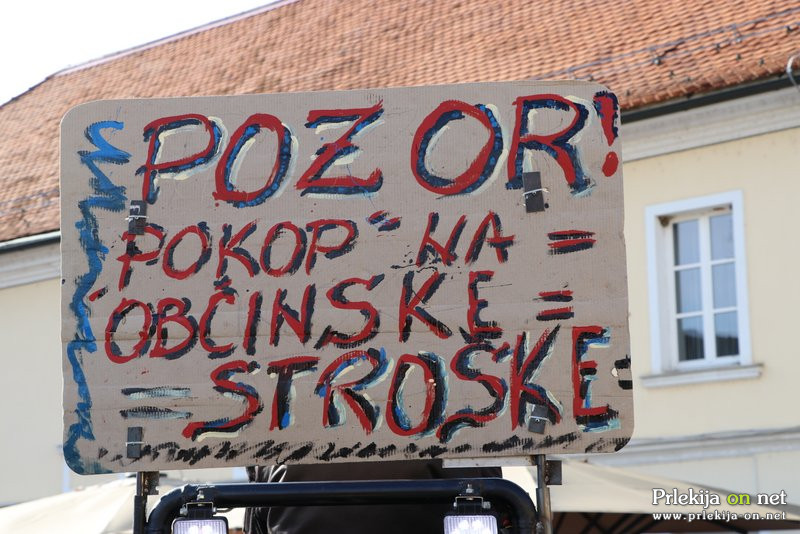 POZOR!
"POKOP" NA =
OBČINSKE =
= STROŠKE
Prlekija on net
www.prlekija-on.net